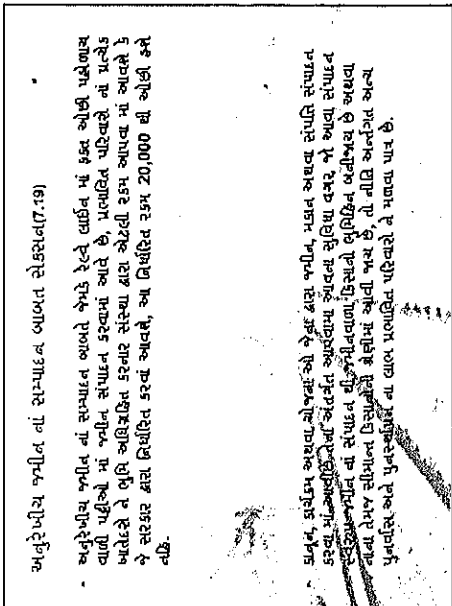 અનુરેખીય જમીન નાં સમ્પાદન બાબત સેક્સન(7.19)
- અનુરેખીય જમીન નાં સમ્પાદન બાબતે જેમકે રેલ્વે લાઈન માં ફક્ત ઓછી પહોળાય
વાળી પટ્ટીઓ માં જમીન સંપાદન કરવામાં આવે છે, પ્રભાવિત પરિવારો નાં પ્રત્યેક
ખાતેદારો ને ભૂમિ અધિગ્રહિત કરનાર સંસ્થા દ્વારા એટલી રકમ આપવા માં આવશે કે
જે સરકાર દ્વારા નિર્ધારિત કરવાં આવશે, આ નિર્ધારિત રકમ 20,000 થી ઓછી હશે
નહિ.
- કાનૂન, કાર્યક્રમ અથવા યોજનાઓ જેના દ્વારા જમીન, મકાન અથવા સંપતિ સંપાદન
કરવા માં આવી છે તેના અંતર્ગત આપવામાં આવના સુવિધા વગર, જો આવા સંપાદન
જમીન નાં સંપાદન થી જમીનવાળા કિસાનો ભૂમિહિન બનીજાય છે અથવા
નાના તેમજ સીમાન્ત કિસાનોની શ્રેણીમાં આવી જાય છે, તો નીતિ અન્તર્ગત અન્ય
પુનર્વાસ અને પુનર્સ્થાપન ના લાભ પ્રભાવિત પરિવારો ને મળવા પાત્ર છે.